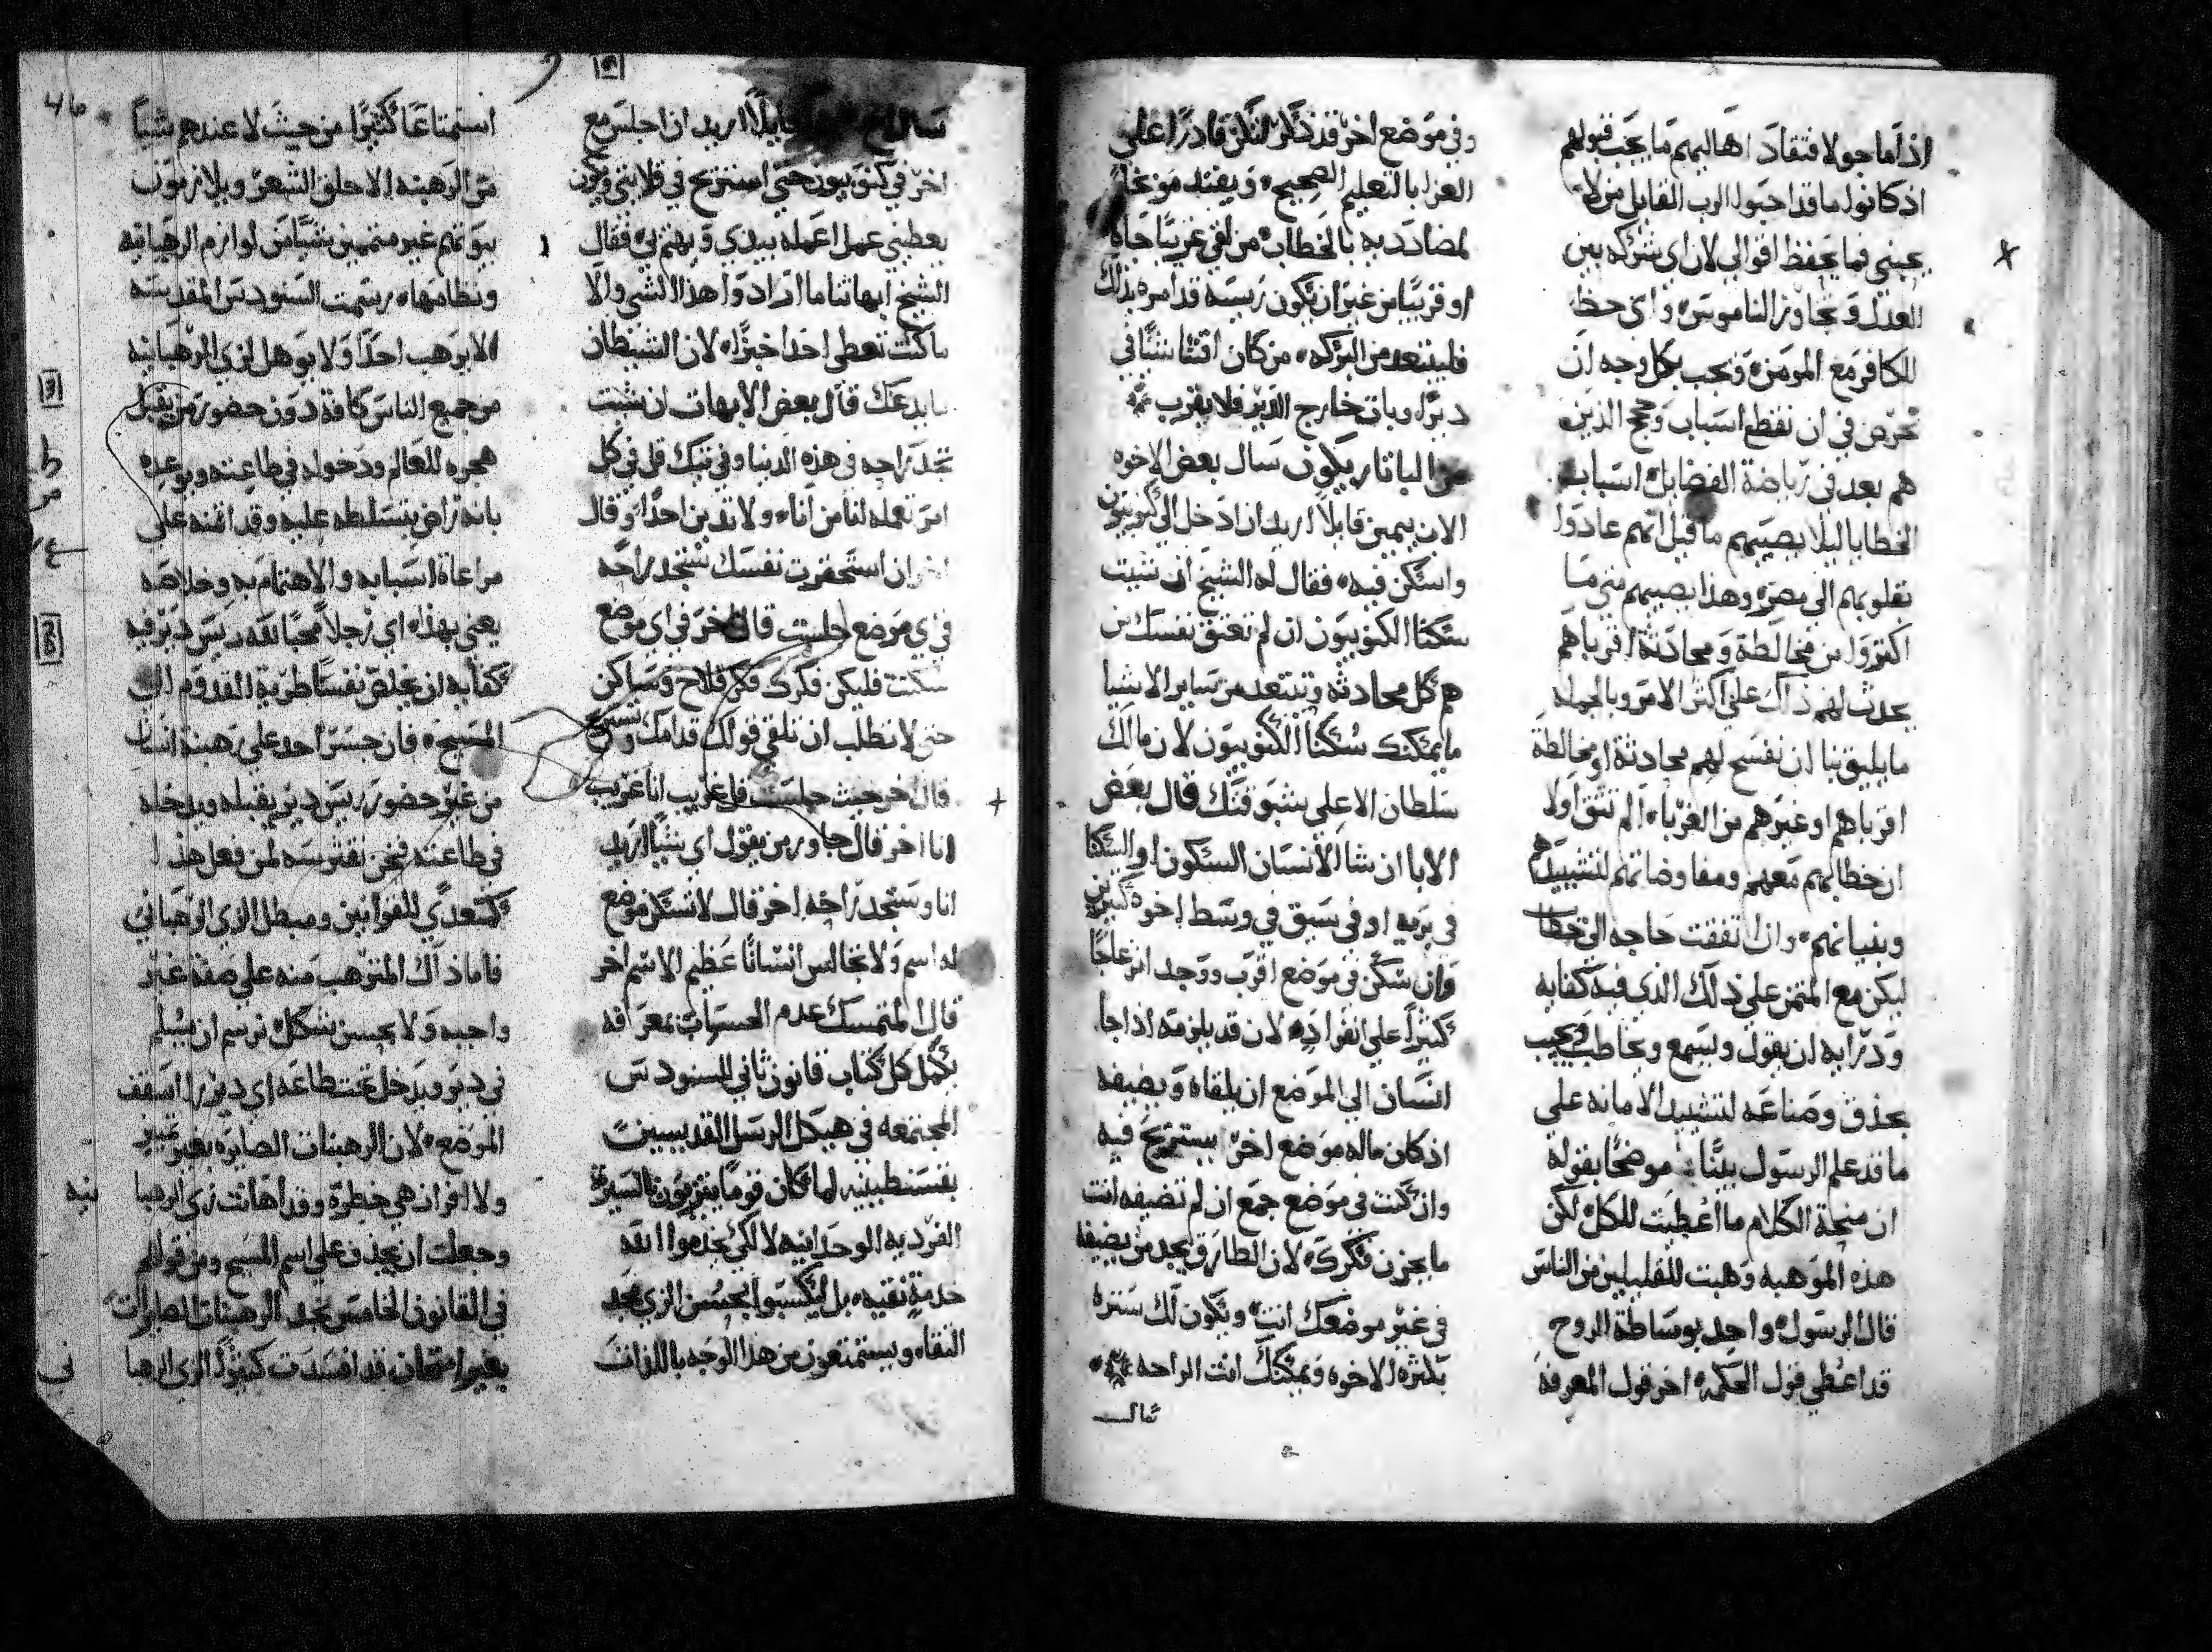 اذا ما جولا فتقاد اهاليهم ما يجب قبولهم
اذ كانوا ما قد احبوا الرب القايل من لا
يحبني فما يحفظ اقوالي لان اي شركه بين
العدل وتجاوز الناموس واي حظ
للكافر مع المومن ونحب بكل وجه ان
نحرص في ان نقطع اسباب وحجج الذين
هم بعد في رياضة الفضايل اسباب
الخطايا ليلا يصيبهم ما قيل انهم عادوا
بقلوبهم الي مصر وهذا يصيبهم متي ما
اكثروا من مخالطة ومحادثة اقرباهم
يحدث لهم ذاك علي اكثر الامر وبالجمله
ما يليق بنا ان نفسح لهم محادثة او مخالطة
اقرباهم او غيرهم من الغربا الم نثق اولا
ان خطابهم معهم ومفاوضاتهم لتشييدهم
وبنيانهم وان اتفقت حاجه الي خطاب
ليكن مع المتمن علي ذلك الذي فيه كفايه
ودرايه ان يقول ويسمع ويخاطب ويجيب
بحذق وصناعه لتشييد الامانه علي
ما قد علم الرسول بينا موضحا بقوله
ان منحة الكلام ما اعطيت للكل لكن
هذه الموهبه وهبت للقليلين من الناس
قال الرسول واحد بوساطة الروح
قد اعطي قول الحكمه اخر قول المعرفة
وفي موضع اخر قد ذكر لتكن قادرا علي
العزا بالتعليم الصحيح ويفتد موبخا
لمضادديه بالخطاب من لقي غريبا جاه
او قريبا من غير ان يكون ريسه قد امره بذلك
فليبتعد من البركه من كان اقتنا شيا في
دير او بات خارج الدير فلا يقرب
من الباتاريكون سال بعض الاخوه
الان بيمين قايلا اريد ان ادخل الي كنوبيون
واسكن فيه فقال له الشيخ ان شيت
سكنا الكنوبيون ان لم تعتق نفسك من
هم كل محادثه وتبتعد من ساير الاشيا
ما يمكنك سكنا الكنوبيون لان مالك
سلطان الا علي بشبوقتك قال بعض
الابا ان شا الانسان السكون او السكنا
في بريه او في سيق في وسط اخوه كثيرين
وان سكن في موضع اقرب ووجد انزعاجا
كثيرا علي انفراده لان قد يلزمه اذا جا
انسان الي الموضع ان يلقاه ويضيفه
اذ كان ماله موضع اخر يستريح فيه
وان كنت في موضع جمع ان لم تضيفه انت
ما يحزن فكرك لان الطارق يجد من يضيفه
في غير موضعك انت ويكون لك ستره
بكثره الاخوه ويمكنك انت الراحه
سال اخ قايلا اريد ان اجلس مع
اخر في كنوبيون حتي استريح في قلايتي ويكون
يعطيني عمل اعمله بيدي ويهتم بي فقال
الشيخ ابهاتنا ما ارادوا هذا الشي والا
ما كنت تعطي احدا خبزا لان الشيطان
ما يدعك قال بعض الابهات ان شيت
تجد راحه في هذه الدنيا وفي تيك قل في كل
امر تعمله لنا من انا ولا تدين احدا وقال
اخر ان استحقرت نفسك ستجد راحه
في اي موضع جلست قال اخر في اي موضع
سكنت فليكن فكرك فكر فلاح وساكن
حتي لا تطلب ان تلقي قولك قدامك وتستريح
قال اخر حيث جلست قل غريب انا غريب
انا اخر قال جاور من يقول اي شيا اريد
انا وستجد راحه اخر قال لا تسكن موضع
له اسم ولا تجالس انسانا عظيم الاسم اخر
قال المتمسك عدم الحسرات بمعرافه
بكمل كل كتاب قانون ثاني للسنودس
المجتمعه في هيكل الرسل القديسين
بقسطنطينيه لما كان قوما يتزيون بالسيره
الفرديه الوحدانيه لا لكي يخدموا الله
خدمة نقيه بل ليكتسبوا بحسن الزي مجد
النقاه ويستمتعون من هذا الوجه باللذات
استمتاعا كثيرا من حيث لا عندهم شيا
من الرهبنه الا حلق الشعر ويلازمون
بيوتهم غير متممين شيا من لوازم الرهبانيه
ونظامها رسمت السنودس المقدسه
الا يرهب احدا ولا يوهل لزي الرهبانيه
من جميع الناس كافة دون حضور من يقبل
هجره للعالم ودخوله في طاعته ويوعده
بانه راض بتسلطه عليه وقد اقنه علي
مراعاة اسبابه والاهتمام به وخلاصه
يعني بهذا اي رجلا محبا لله ريس دير فيه
كفايه ان يخلص نفسا طرية القدوم الي
المسيح فان جسر احد علي رهبنة انسان
من غير حضور ريس دير يقبله ويدخله
في طاعته فنحن نفترسه لمن فعل هذا
كمتعدي للقوانين ومبطل الزي الرهباني
فاما ذاك المترهب منه علي صفة غير
واجبه ولا يحسن بشكل نرسم ان يسلم
في دير ويدخل تحت طاعه اي دير را اسقف
الموضع لان الرهبنات الصايره بغير تمييز
ولا افراز هي خطرة وقد اهانت زي الرهبا
نيه
وجعلت ان يجذف علي اسم المسيح ومن قولهم
في القانون الخامس نجد الرهبنات الصايرات
بغير امتحان قد افسدت كثيرا الزي الرهبا
ني